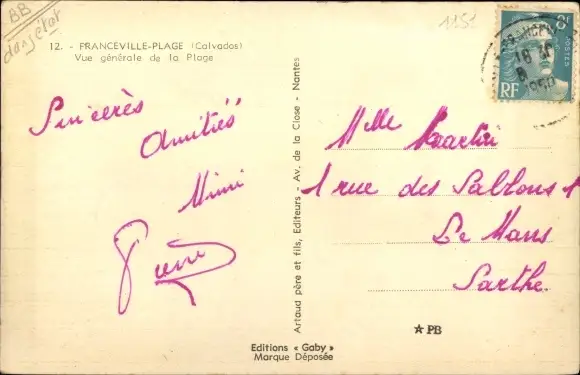 BB
dans état
1151
12. - FRANCEVILLE-PLAGE (Calvados)
Vue générale de la Plage
Sincères
Amitiés
Mimi
Pierre
Artaud père et fils, Editeurs - Av. de la Close - Nantes
8F
POSTES
RF
18 H
8
1950
Mlle Martin
1 rue des Sablons
Le Mans
Sarthe.
PB
Editions « Gaby »
Marque Déposée